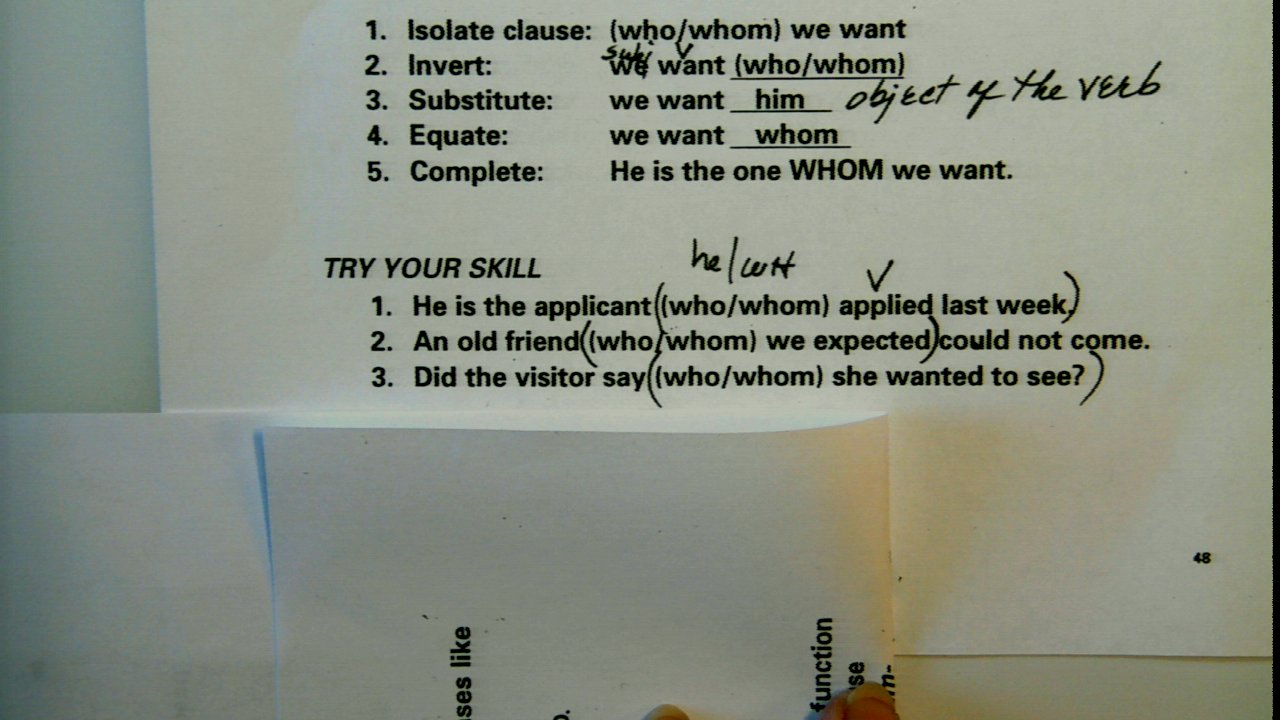 1. Isolate clause: (who/whom) we want
subj v
2. Invert: we want (who/whom)
3. Substitute: we want him object of the verb
4. Equate: we want whom
5. Complete: He is the one WHOM we want.
he/
TRY YOUR SKILL v
1. He is the applicant ((who/whom) applied last week.)
2. An old friend ((who/whom) we expected) could not come.
3. Did the visitor say ((who/whom) she wanted to see?)
48
ses like
function
se
n-